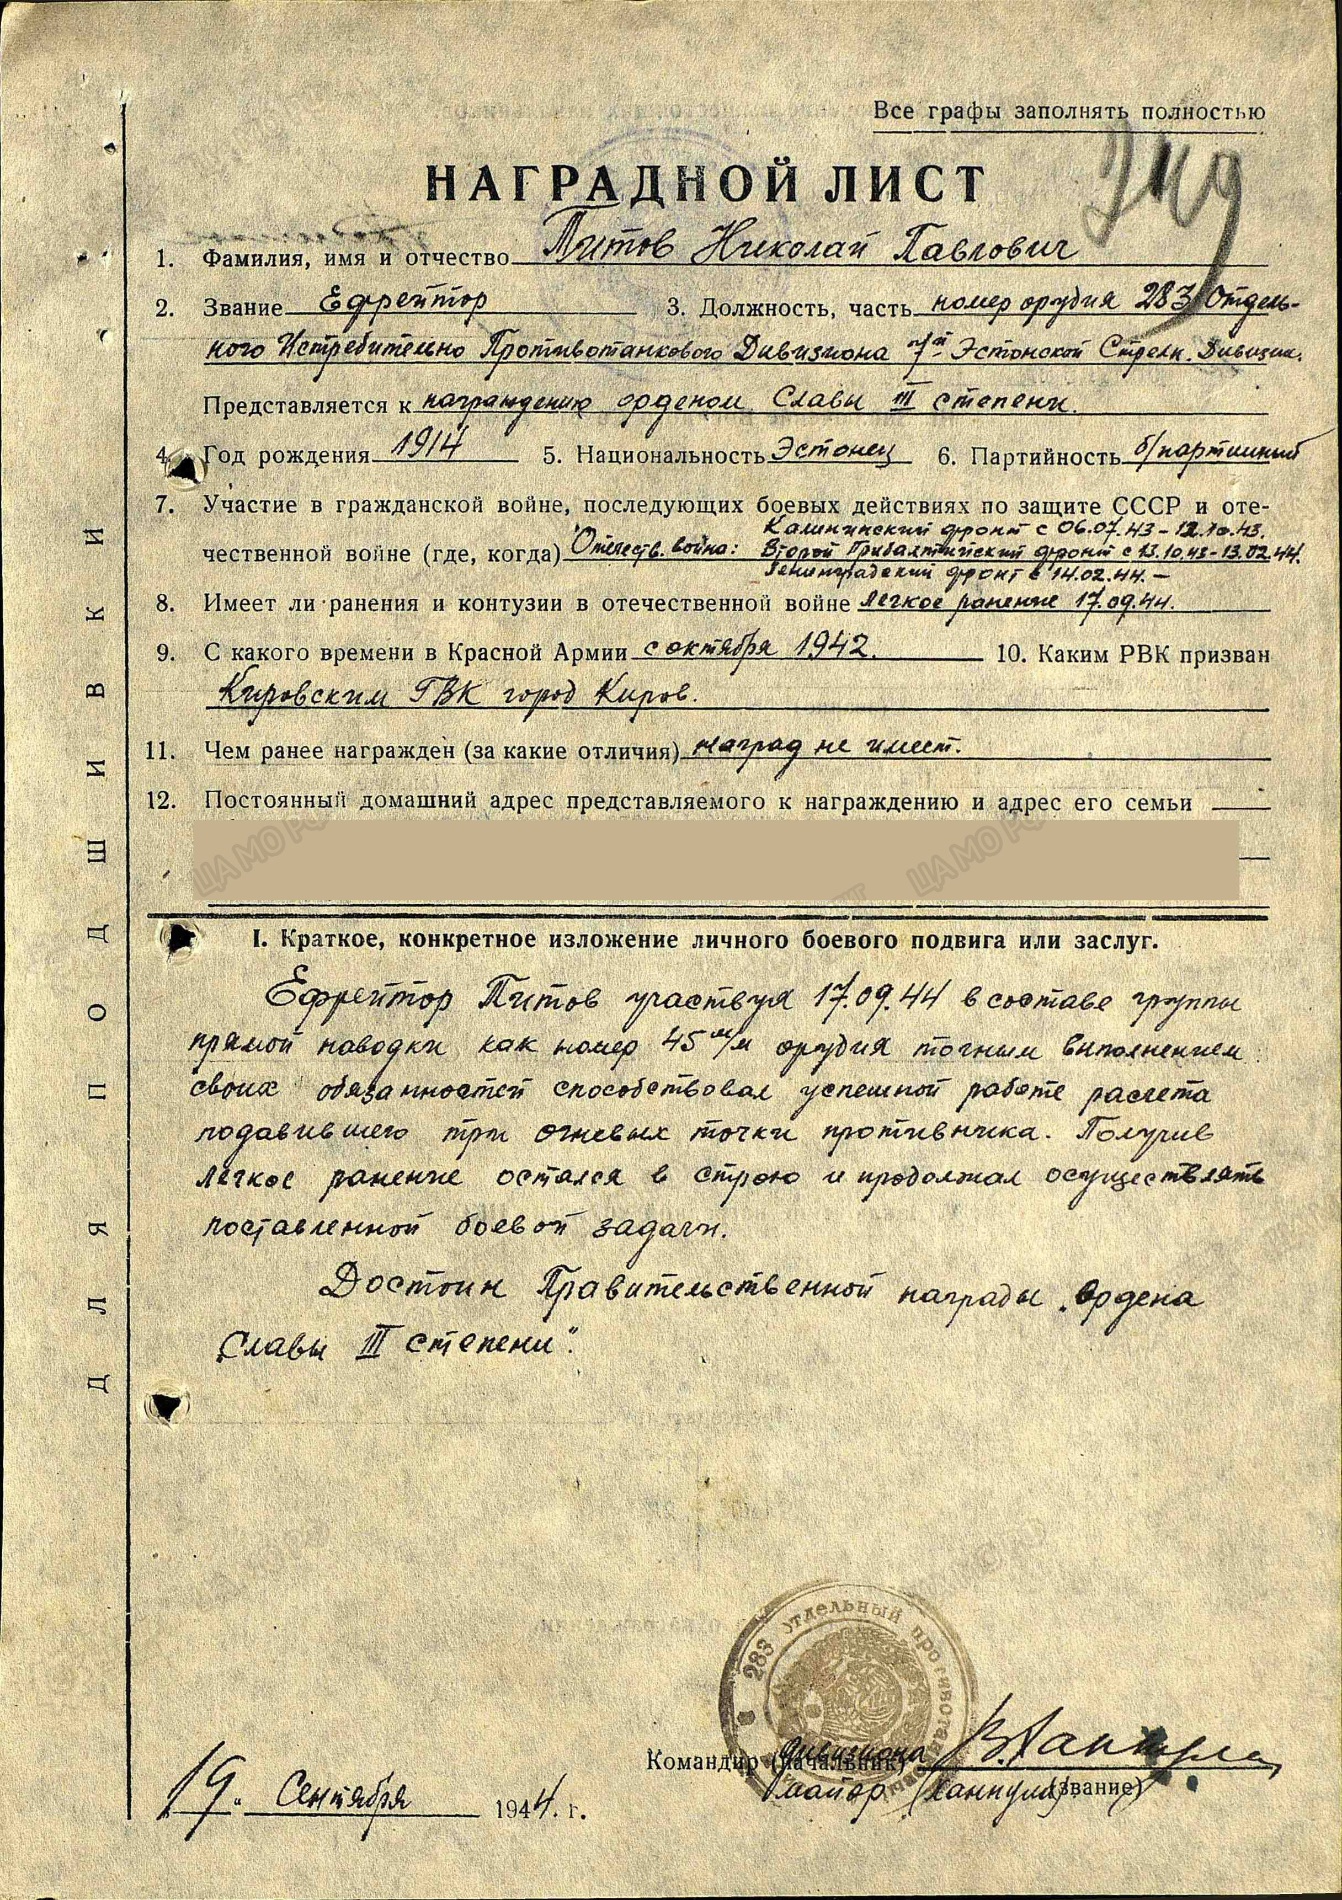 Все графы заполнять полностью
НАГРАДНОЙ ЛИСТ
1. Фамилия, имя и отчество Титов Николай Павлович
2. Звание Ефрейтор 3. Должность, часть номер орудия 283 Отдель-
ного Истребительно Противотанкового Дивизиона 7й Эстонской Стрелк. Дивизии.
Представляется к награждению орденом Славы III степени.
4. Год рождения 1914 5. Национальность Эстонец 6. Партийность б/партийный
7. Участие в гражданской войне, последующих боевых действиях по защите СССР и оте-
Калининский фронт с 06.07.43-12.10.43.
чественной войне (где, когда) Отечеств. война: Второй Прибалтийский фронт с 13.10.43-13.02.44.
Ленинградский фронт с 14.02.44.-
8. Имеет ли ранения и контузии в отечественной войне легкое ранение 17.09.44.
9. С какого времени в Красной Армии с октября 1942. 10. Каким РВК призван
Кировским ГВК город Киров.
11. Чем ранее награжден (за какие отличия) наград не имеет.
12. Постоянный домашний адрес представляемого к награждению и адрес его семьи
ЦАМО РФ ЦАМО РФ
I. Краткое, конкретное изложение личного боевого подвига или заслуг.
Ефрейтор Титов участвуя 17.09.44 в составе группы
прямой наводки как номер 45 м/м орудия точным выполнением
своих обязанностей способствовал успешной работе расчета
подавившего три огневых точки противника. Получив
легкое ранение остался в строю и продолжал осуществлять
поставленной боевой задачи.
Достоин Правительственной награды "Ордена
Славы III степени".
283 отдельный противота
Командир (начальник) дивизиона
майор (Ханнула) (звание)
19. Сентября 1944. г.
ДЛЯ ПОДШИВКИ